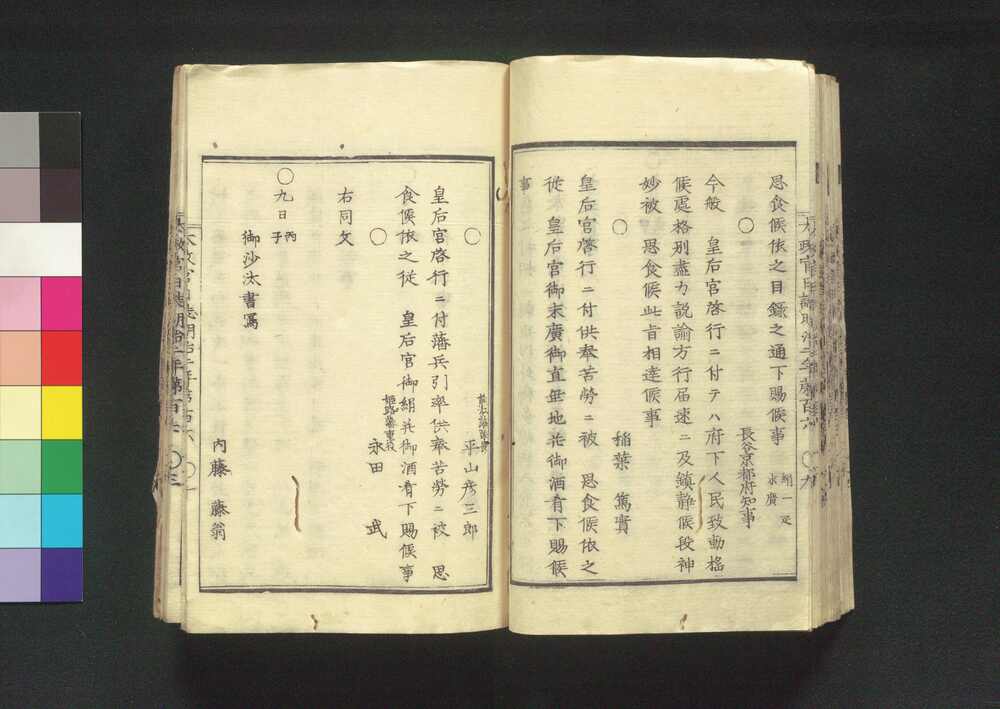 思食候依之目錄之通下賜候事
絹一疋
末廣
○
長谷京都府知事
今般 皇后宮啓行ニ付テハ府下人民致動搖
候處格別盡力說諭方行届速ニ及鎮静候段神
妙被 思食候此旨相達候事
○
稲葉 篤實
皇后宮啓行ニ付供奉苦勞ニ被 思食候依之
從 皇后宮御末廣御直垂地并御酒肴下賜候
事
○
平山彦三郎
皇后宮啓行ニ付藩兵引率供奉苦勞ニ被 思
食候依之從 皇后宮御絹并御酒肴下賜候事
○
姫路藩
永田 武
右同文
○九日丙子
御沙汰書寫
内藤 藤翁